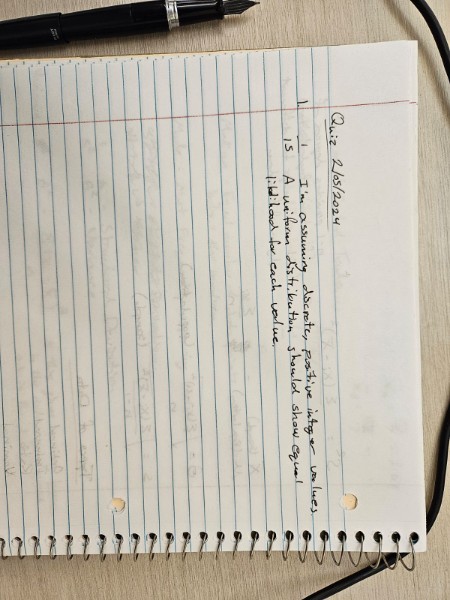 Quiz 2/05/2024
1. 1 I'm assuming discrete, positive integer values.
15 A uniform distribution should show equal
likelihood for each value.